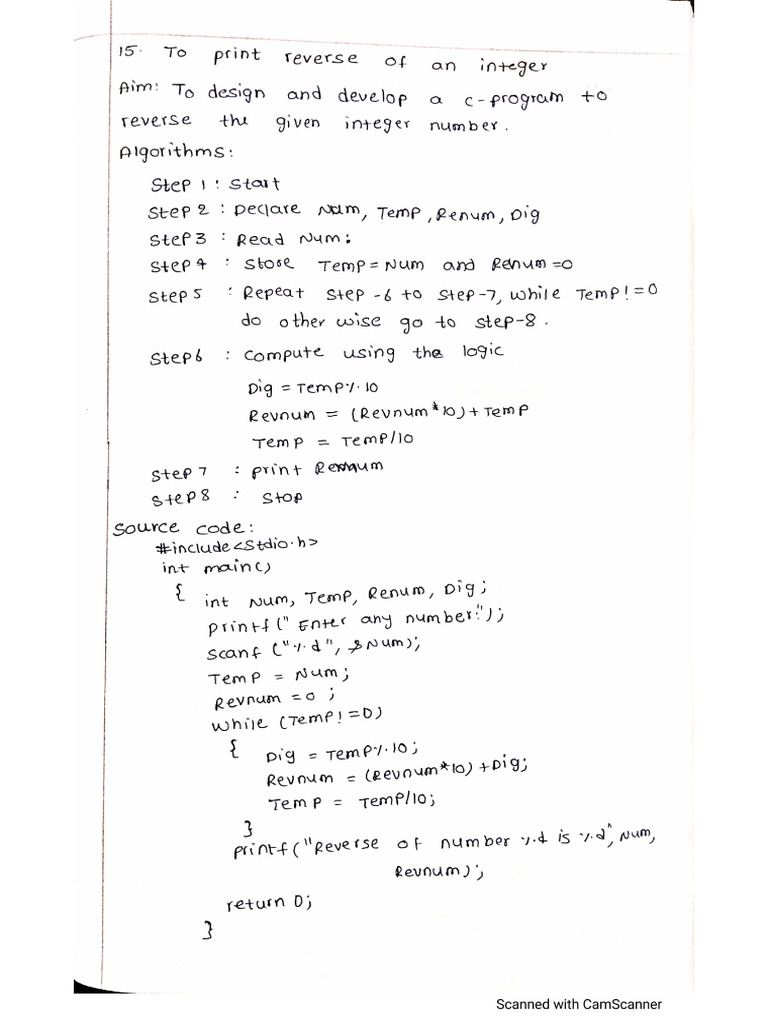 15. To print reverse of an integer
Aim: To design and develop a c-program to
reverse the given integer number.
Algorithms:
Step 1 : Start
Step 2 : Declare Num, Temp, Renum, Dig
Step3 : Read Num;
Step 4 : Store Temp = Num and Renum = 0
Step 5 : Repeat Step -6 to Step-7, while Temp! = 0
do other wise go to step-8.
Step6 : compute using the logic
Dig = Temp % 10
Revnum = (Revnum*10) + Temp
Temp = Temp/10
Step 7 : print Revnum
Step8 : Stop
Source code:
#include<stdio.h>
int main()
{ int Num, Temp, Renum, Dig;
printf(" Enter any number:");
scanf ("%d", &Num);
Temp = Num;
Revnum = 0 ;
while (Temp! = 0)
{ Dig = Temp % 10;
Revnum = (Revnum*10) + Dig;
Temp = Temp/10;
}
printf("Reverse of number %d is %d", Num,
Revnum);
return 0;
}
Scanned with CamScanner